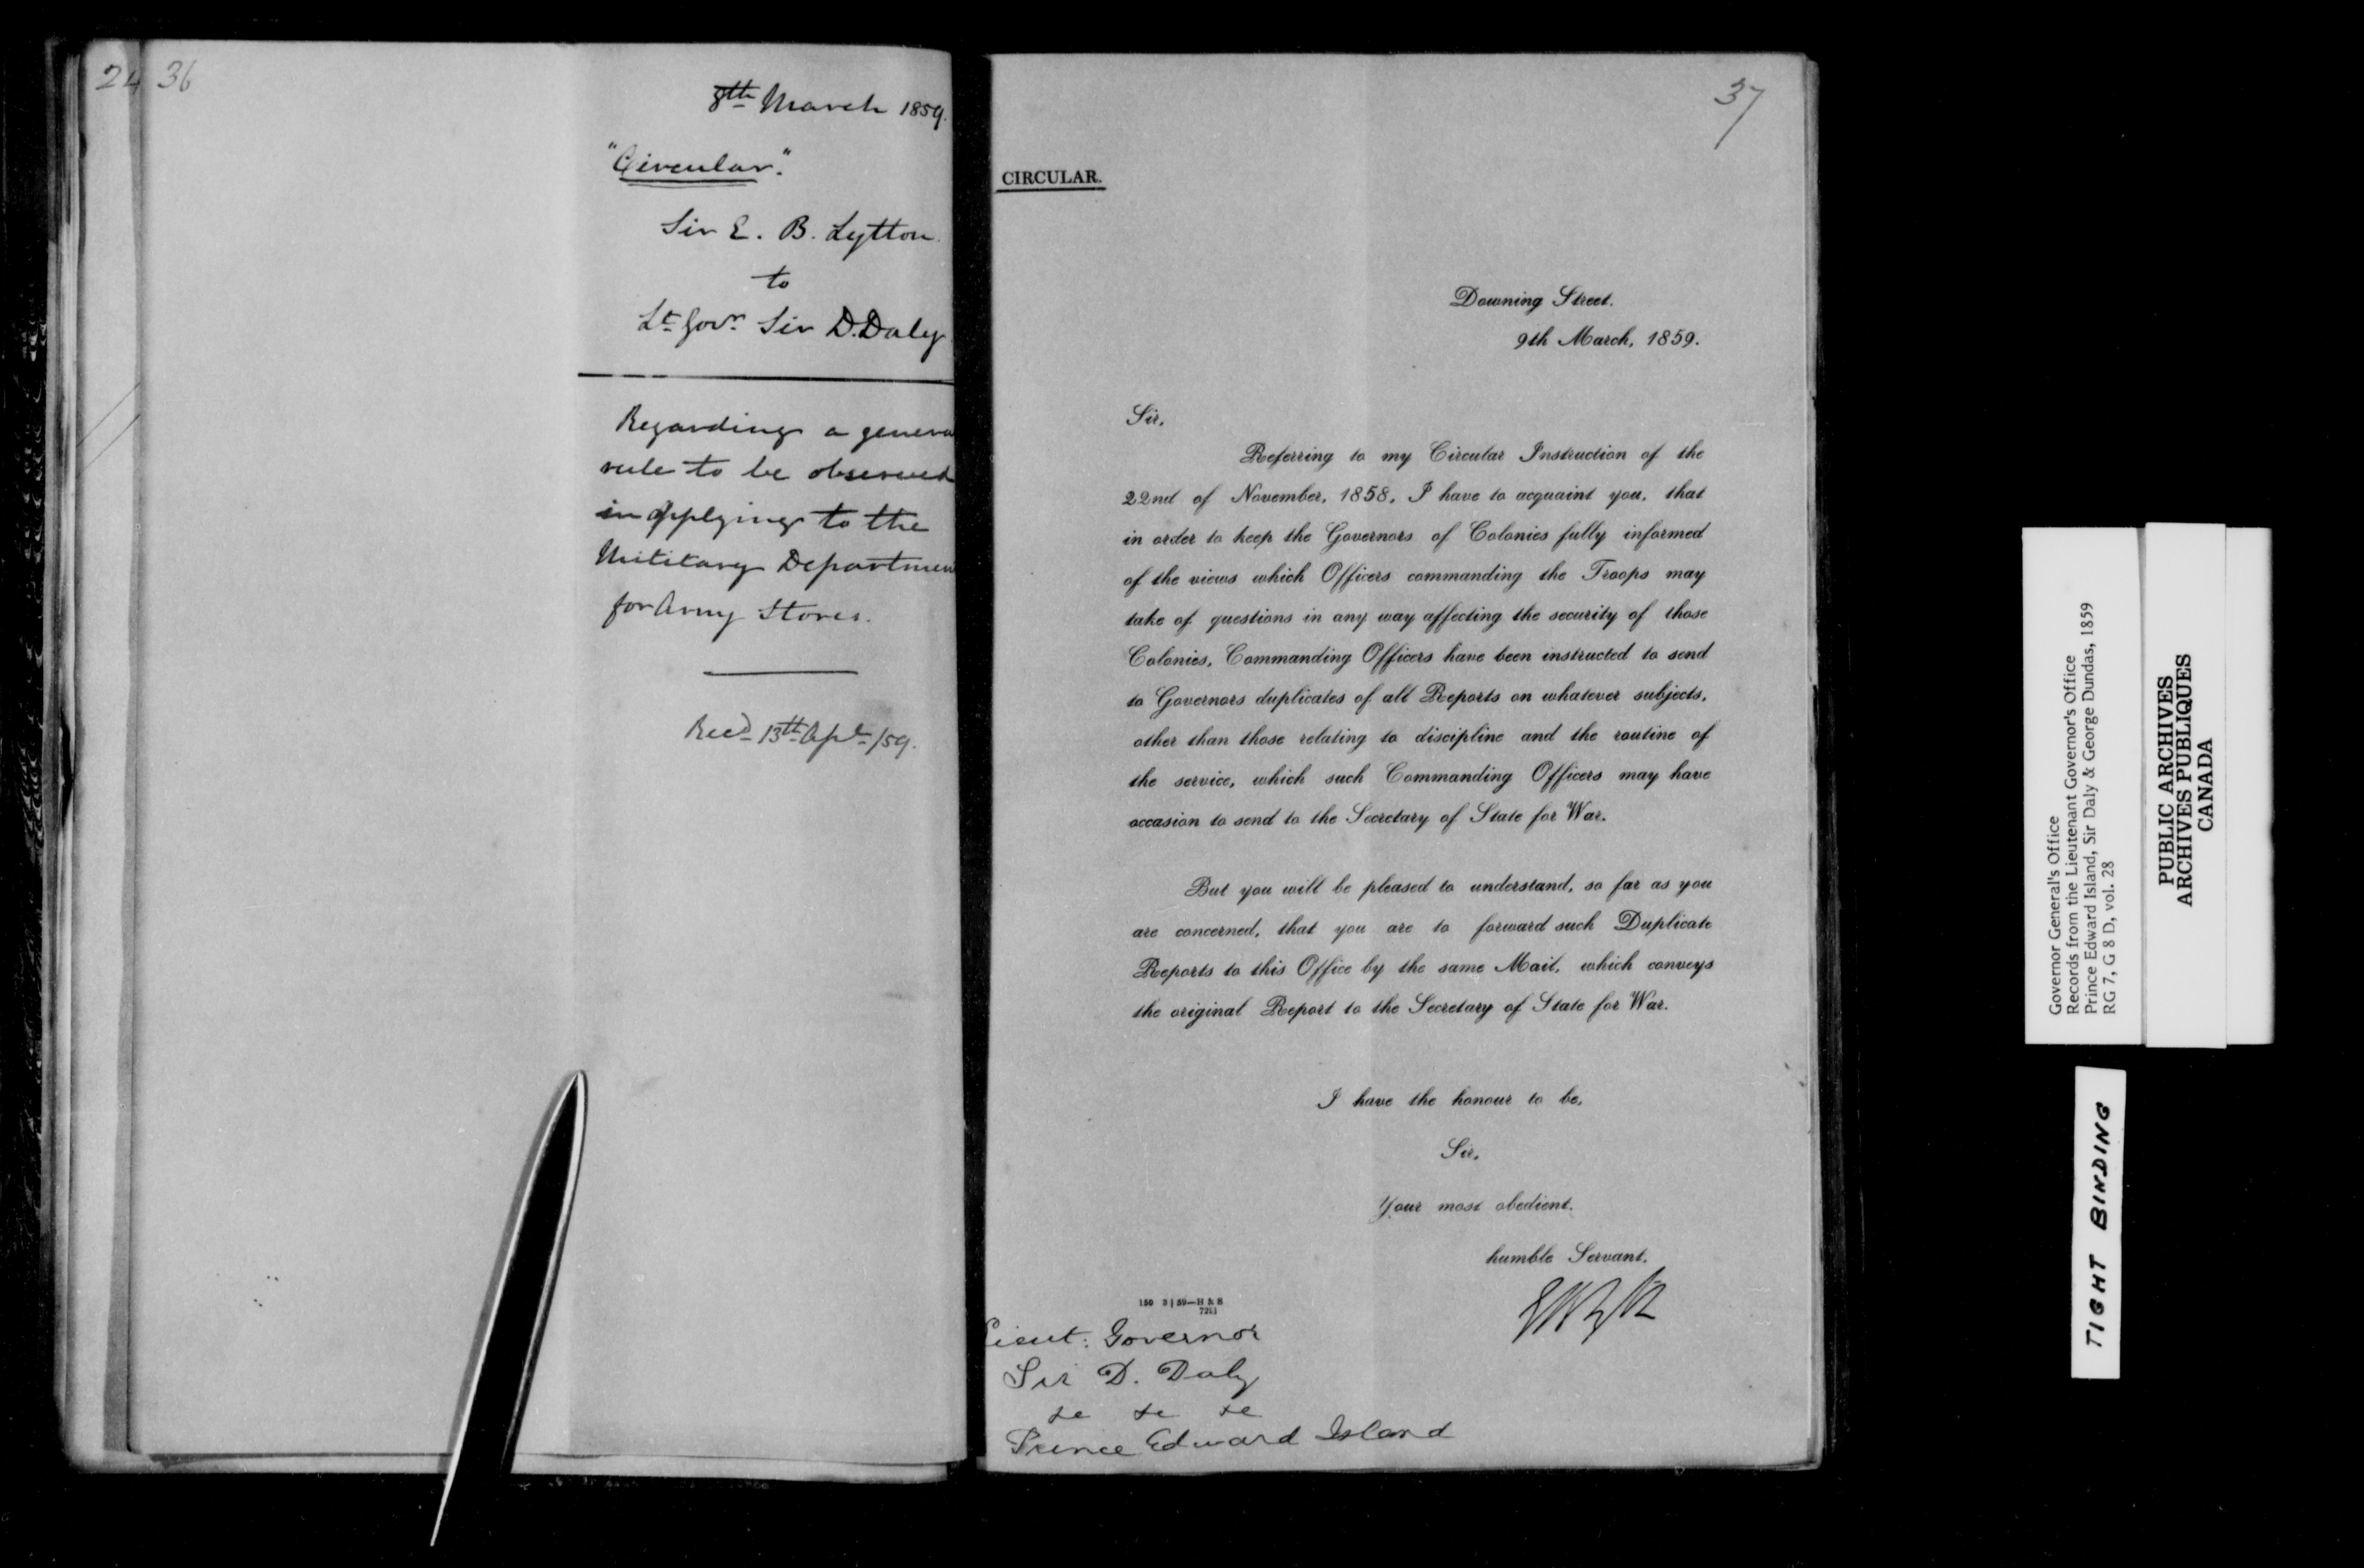 24 36
8th March 1859.
"Circular".
Sir E. B. Lytton
to
Lt Govr. Sir D. Daly
Regarding a genera
rule to be observed
in applying to the
Military Departmen
for Army Stores.
Recd 13th Apl /59.
37
CIRCULAR.
Downing Street,
9th March, 1859.
Sir,
Referring to my Circular Instruction of the
22nd of November, 1858, I have to acquaint you, that
in order to keep the Governors of Colonies fully informed
of the views which Officers commanding the Troops may
take of questions in any way affecting the security of those
Colonies, Commanding Officers have been instructed to send
to Governors duplicates of all Reports on whatever subjects,
other than those relating to discipline and the routine of
the service, which such Commanding Officers may have
occasion to send to the Secretary of State for War.
But you will be pleased to understand, so far as you
are concerned, that you are to forward such Duplicate
Reports to this Office by the same Mail, which conveys
the original Report to the Secretary of State for War.
I have the honour to be,
Sir,
Your most obedient,
humble Servant,
150 3 | 59—H & S
7211
Lieut: Governor
Sir D. Daly
&c &c &c
Prince Edward Island
Governor General's Office
Records from the Lieutenant Governor's Office
Prince Edward Island, Sir Daly & George Dundas, 1859
RG 7, G 8 D, vol. 28
PUBLIC ARCHIVES
ARCHIVES PUBLIQUES
CANADA
TIGHT BINDING